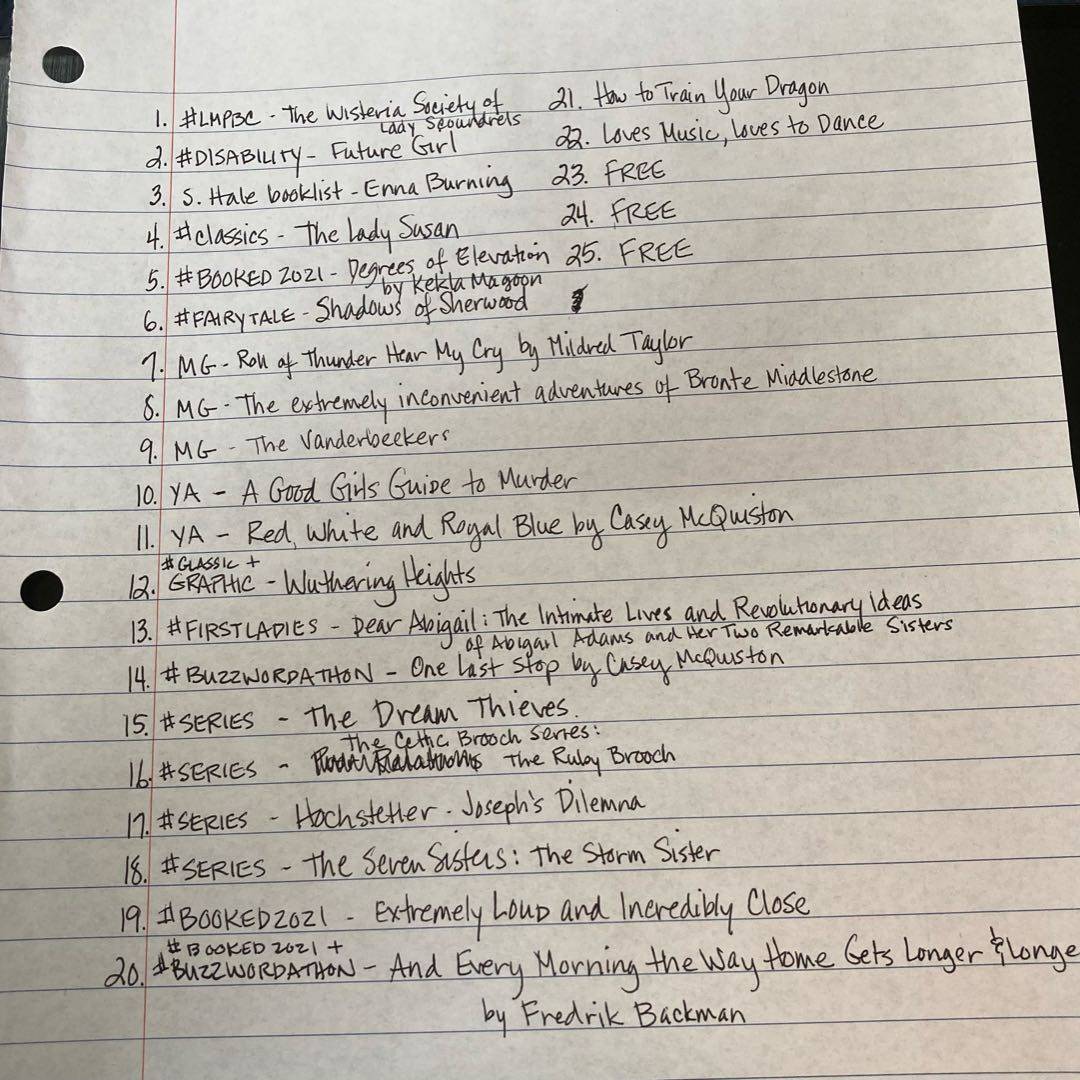 1. #LMPBC - The Wisteria Society of
Lady Scoundrels
2. #DISABILITY - Future Girl
3. S. Hale booklist - Enna Burning
4. #classics - The Lady Susan
5. #BOOKED 2021 - Degrees of Elevation
by Kekla Magoon
6. #FAIRYTALE - Shadows of Sherwood
7. MG - Roll of Thunder Hear My Cry by Mildred Taylor
8. MG - The extremely inconvenient adventures of Bronte Middlestone
9. MG - The Vanderbeekers
10. YA - A Good Girls Guide to Murder
11. YA - Red, White and Royal Blue by Casey McQuiston
#CLASSIC +
12. GRAPHIC - Wuthering Heights
13. #FIRSTLADIES - Dear Abigail: The Intimate Lives and Revolutionary Ideas
of Abigail Adams and Her Two Remarkable Sisters
14. #BUZZWORDATHON - One Last Stop by Casey McQuiston
15. #SERIES - The Dream Thieves.
The Celtic Brooch Series:
16. #SERIES - The Ruby Brooch
17. #SERIES - Hochstetler - Joseph's Dilemna
18. #SERIES - The Seven Sisters: The Storm Sister
19. #BOOKED2021 - Extremely Loud and Incredibly Close
#BOOKED 2021 +
20. #BUZZWORDATHON - And Every Morning the Way Home Gets Longer & Longe
by Fredrik Backman
21. How to Train Your Dragon
22. Loves Music, Loves to Dance
23. FREE
24. FREE
25. FREE